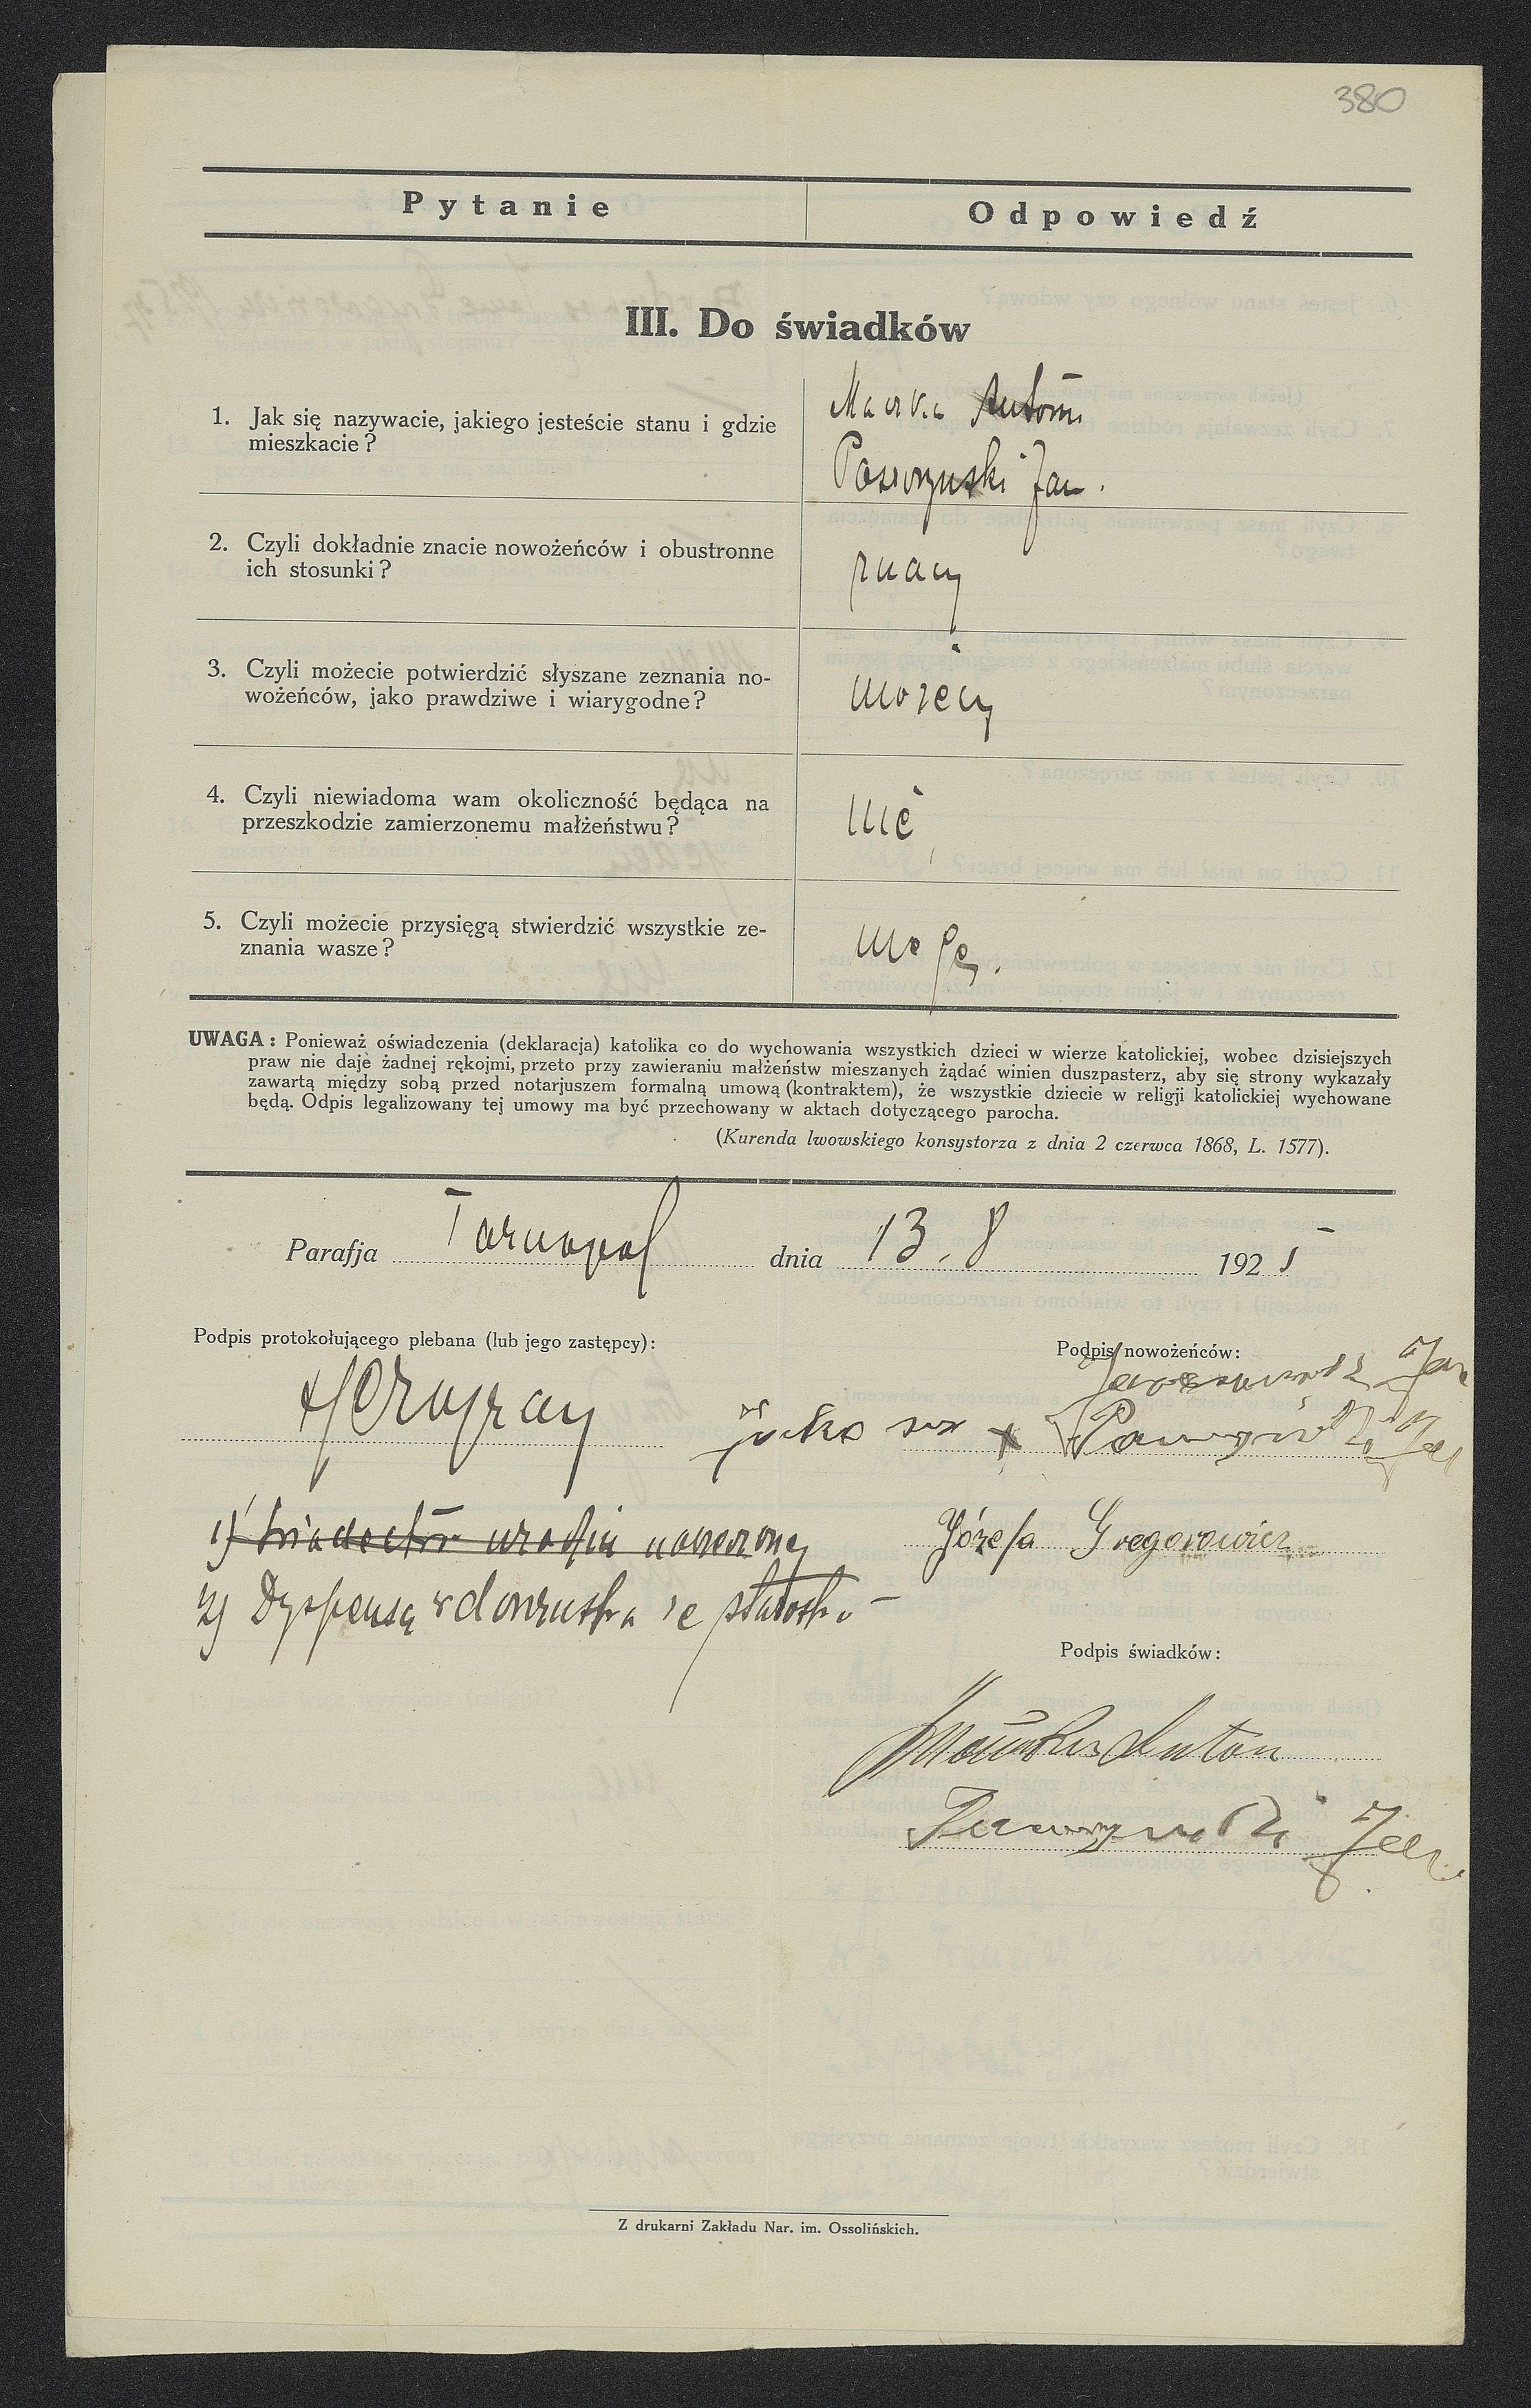 380
Pytanie
Odpowiedź
III. Do świadków
1. Jak się nazywacie, jakiego jesteście stanu i gdzie
mieszkacie?
Antoni
Jan.
2. Czyli dokładnie znacie nowożeńców i obustronne
ich stosunki?
znamy
3. Czyli możecie potwierdzić słyszane zeznania no-
wożeńców, jako prawdziwe i wiarygodne?
możemy
4. Czyli niewiadoma wam okoliczność będąca na
przeszkodzie zamierzonemu małżeństwu?
nie
5. Czyli możecie przysięgą stwierdzić wszystkie ze-
znania wasze?
UWAGA: Ponieważ oświadczenia (deklaracja) katolika co do wychowania wszystkich dzieci w wierze katolickiej, wobec dzisiejszych
praw nie daje żadnej rękojmi, przeto przy zawieraniu małżeństw mieszanych żądać winien duszpasterz, aby się strony wykazały
zawartą między sobą przed notarjuszem formalną umową (kontraktem), że wszystkie dziecie w religji katolickiej wychowane
będą. Odpis legalizowany tej umowy ma być przechowany w aktach dotyczącego parocha.
(Kurenda lwowskiego konsystorza z dnia 2 czerwca 1868, L. 1577).
Parafja Tarnopol dnia 13. 8 1925
Podpis protokołującego plebana (lub jego zastępcy):
Podpis nowożeńców:
Jan
Józefa Gregorowicz
1) urodzin narzeczonej
2) Dyspensa ze
Podpis świadków:
Anton
Jan
Z drukarni Zakładu Nar. im. Ossolińskich.